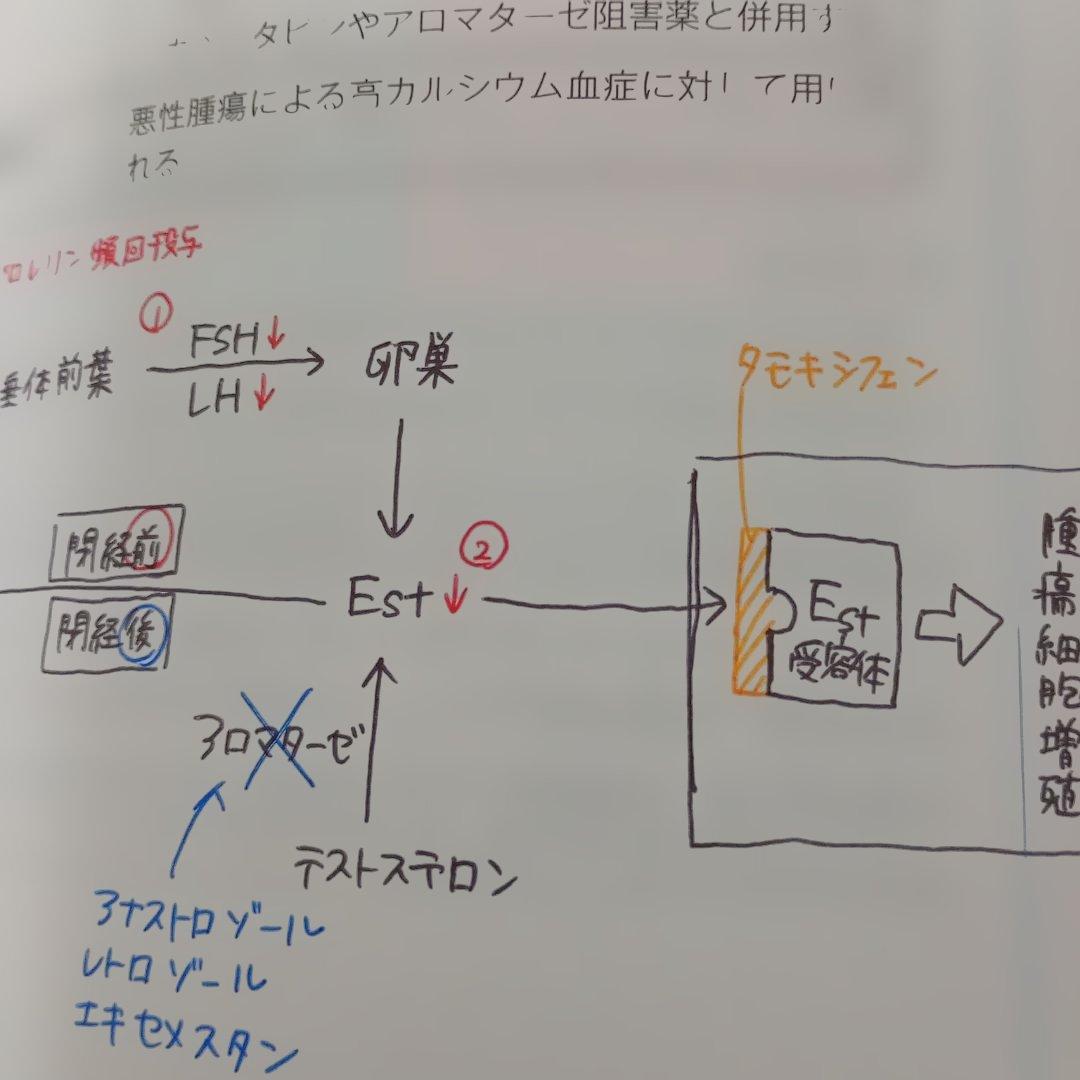 やアロマターゼ阻害薬と併用す
悪性腫瘍による高カルシウム血症に対して用い
れる
ロレリン 頻回投与
①
FSH↓
LH↓
垂体前葉
卵巣
タモキシフェン
閉経前
閉経後
Est↓
②
Est
受容体
腫瘍細胞増殖
アロマターゼ
テストステロン
アナストロゾール
レトロゾール
エキセメスタン